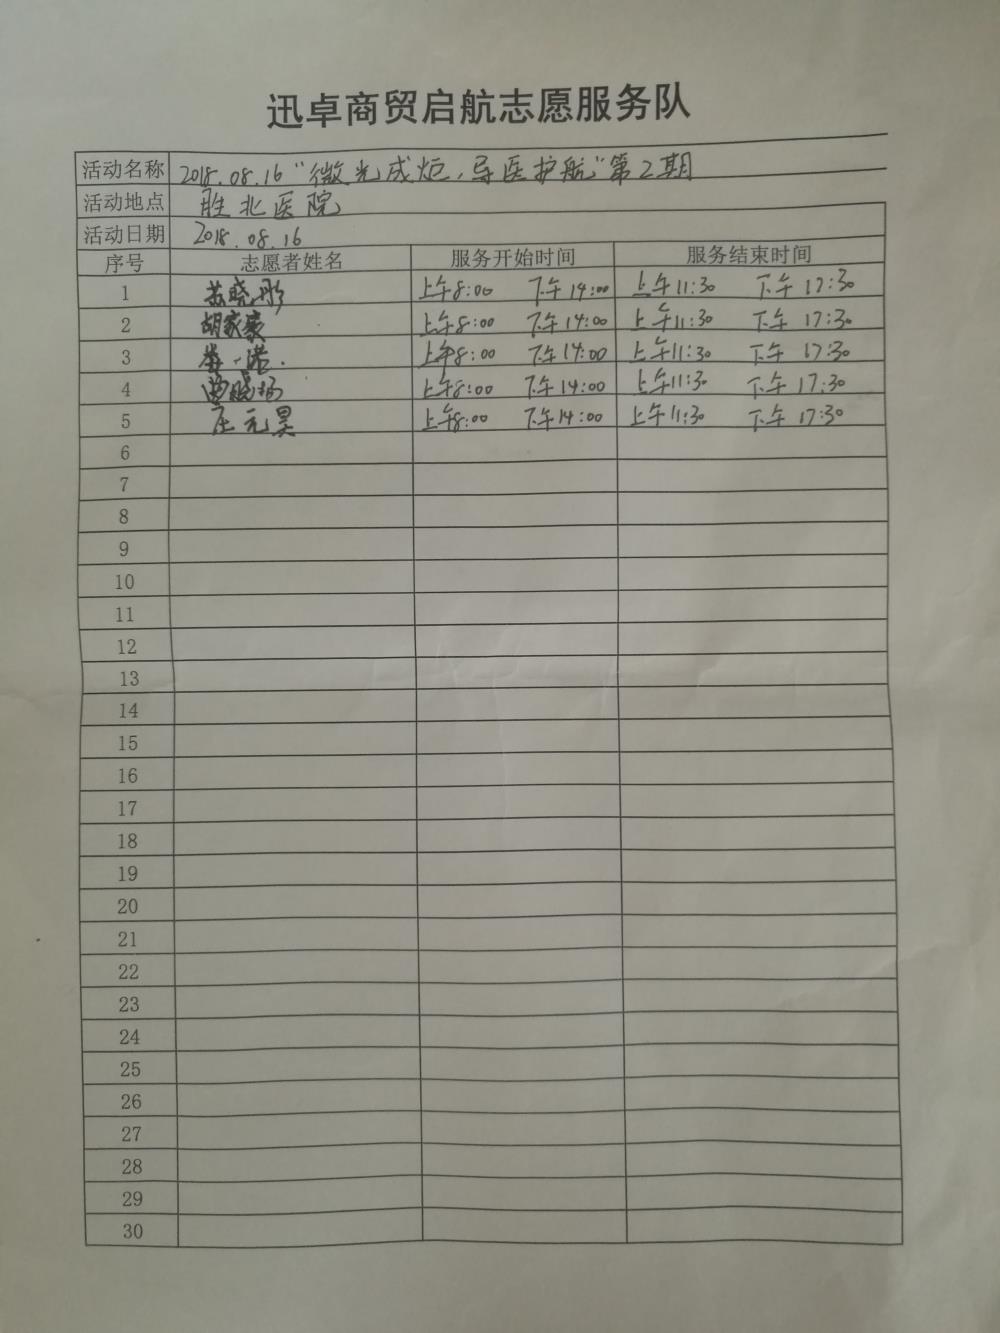 迅卓商贸启航志愿服务队
活动名称 2018.08.16“微光成炬，导医护航”第2期
活动地点 胜北医院
活动日期 2018.08.16
序号 志愿者姓名 服务开始时间 服务结束时间
1 苏晓彤 上午8:00 下午14:00 上午11:30 下午17:30
2 胡家豪 上午8:00 下午14:00 上午11:30 下午17:30
3 上午8:00 下午14:00 上午11:30 下午17:30
4 上午8:00 下午14:00 上午11:30 下午17:30
5 庄元昊 上午8:00 下午14:00 上午11:30 下午17:30
6
7
8
9
10
11
12
13
14
15
16
17
18
19
20
21
22
23
24
25
26
27
28
29
30